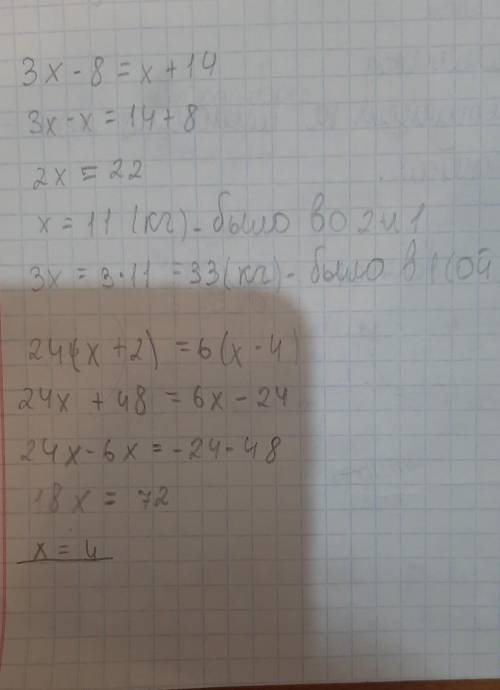 3x - 8 = x + 14
3x - x = 14 + 8
2x = 22
x = 11 (кг) - было во 2 и 1
3x = 3·11 = 33 (кг) - было в 1 (ой
24(x + 2) = 6(x - 4)
24x + 48 = 6x - 24
24x - 6x = -24 - 48
18x = 72
x = 4